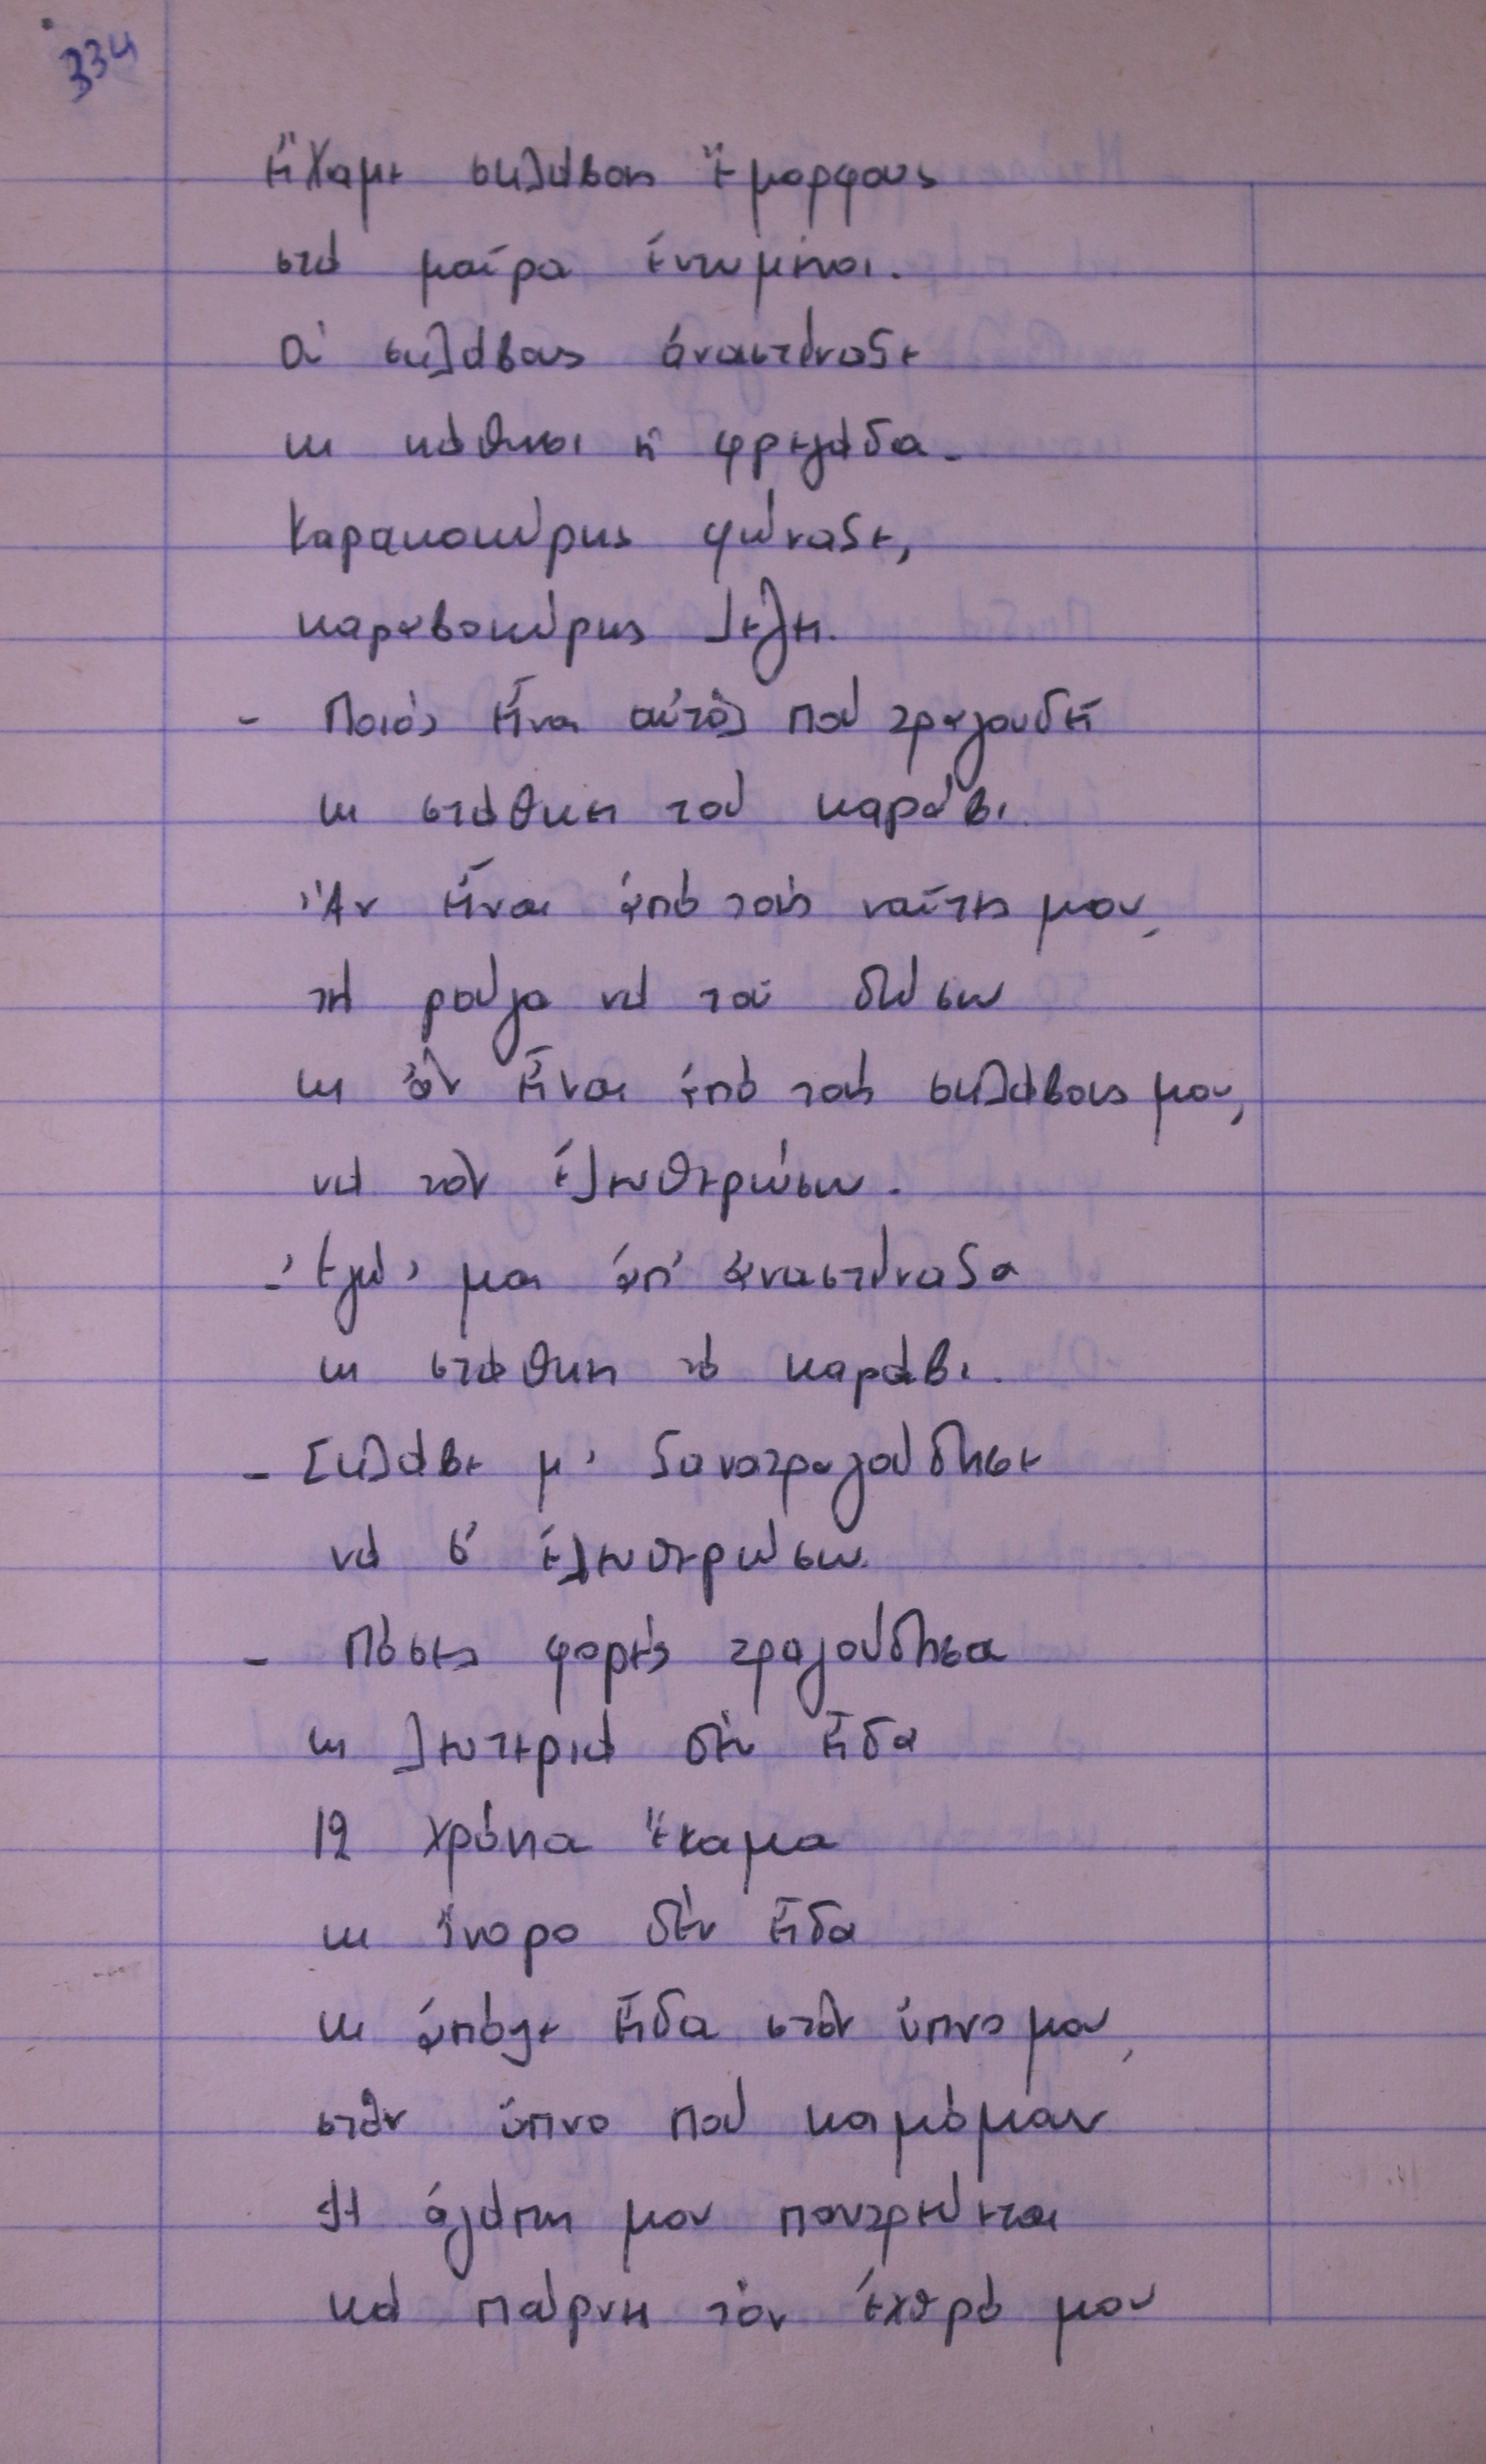 334
εἴχαμε σκλάβοι ἔμορφους
στά μαῦρα ἐντυμένοι.
Οἱ σκλάβους ἀναστέναξε
κι κάθησι ἡ φρεγάδα.
Καρακοκύρης φώναξε,
καραβοκύρης λέγει.
- Ποιός εἶναι αὐτός πού τραγουδεῖ
κι στάθκει τού καράβι.
Ἄν εἶναι ἀπό τούς ναῦτες μου,
τή ρούγα νά τοῦ δώσω
κι ἄν εἶναι ἀπό τούς σκλάβους μου,
νά τόν ἐλευθερώσω.
- Ἐγώ 'μαι ἀπ' ἀναστέναξα
κι στάθκει τό καράβι.
- Σκλάβε μ' ξανατραγούδησε
νά σ' ἐλευθερώσω.
- Πόσες φορές τραγούδησα
κι λευτεριά δέν εἶδα
12 χρόνια ἔκαμα
κι ὄνορο δέν εἶδα
κι ἀπόψε εἶδα στόν ὕπνο μου,
στόν ὕπνο πού κοιμόμαν
Ἡ ἀγάπη μου παντρεύεται
καί παίρνει τόν ἐχθρό μου